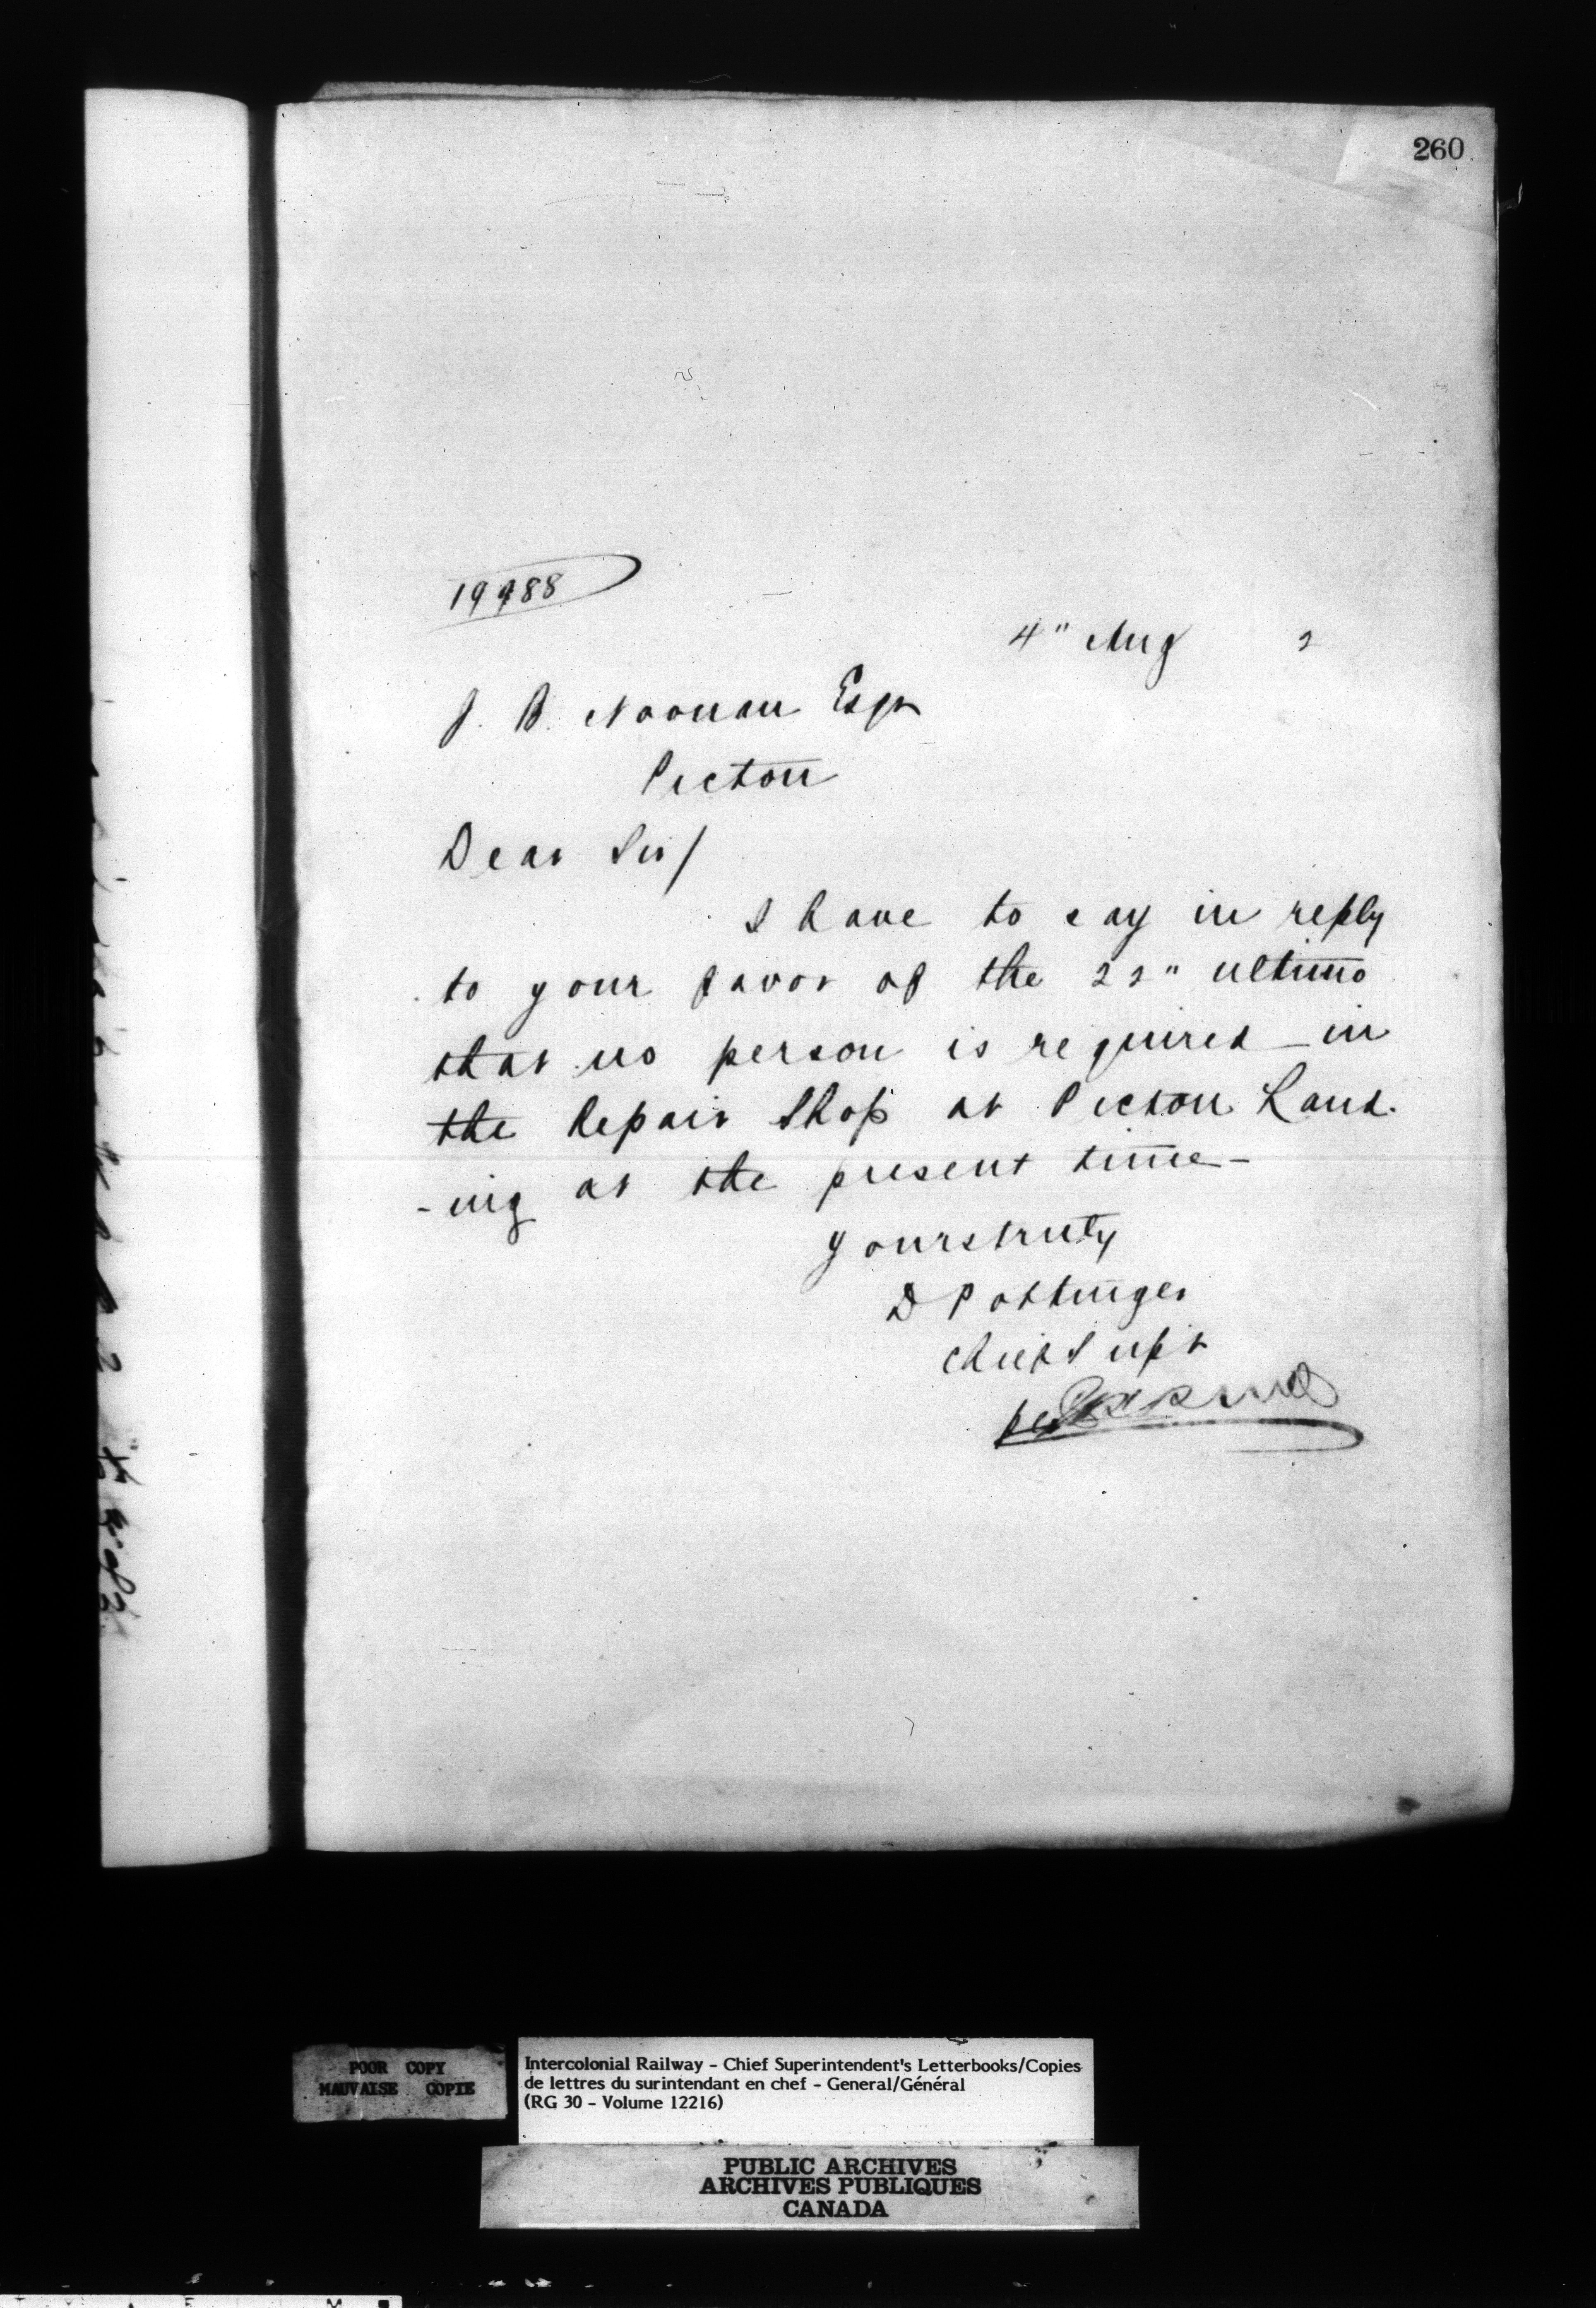 260
19988
4" Aug 2
J. B. Noonan Esqr
Pictou
Dear Sir/
I have to say in reply
to your favor of the 22" ultimo
that no person is required in
the Repair Shop at Pictou Land-
-ing at the present time-
Yours truly
D Pottinger
Chief Supt
per
POOR COPY
MAUVAISE COPIE
Intercolonial Railway - Chief Superintendent's Letterbooks/Copies
de lettres du surintendant en chef - General/Général
(RG 30 - Volume 12216)
PUBLIC ARCHIVES
ARCHIVES PUBLIQUES
CANADA